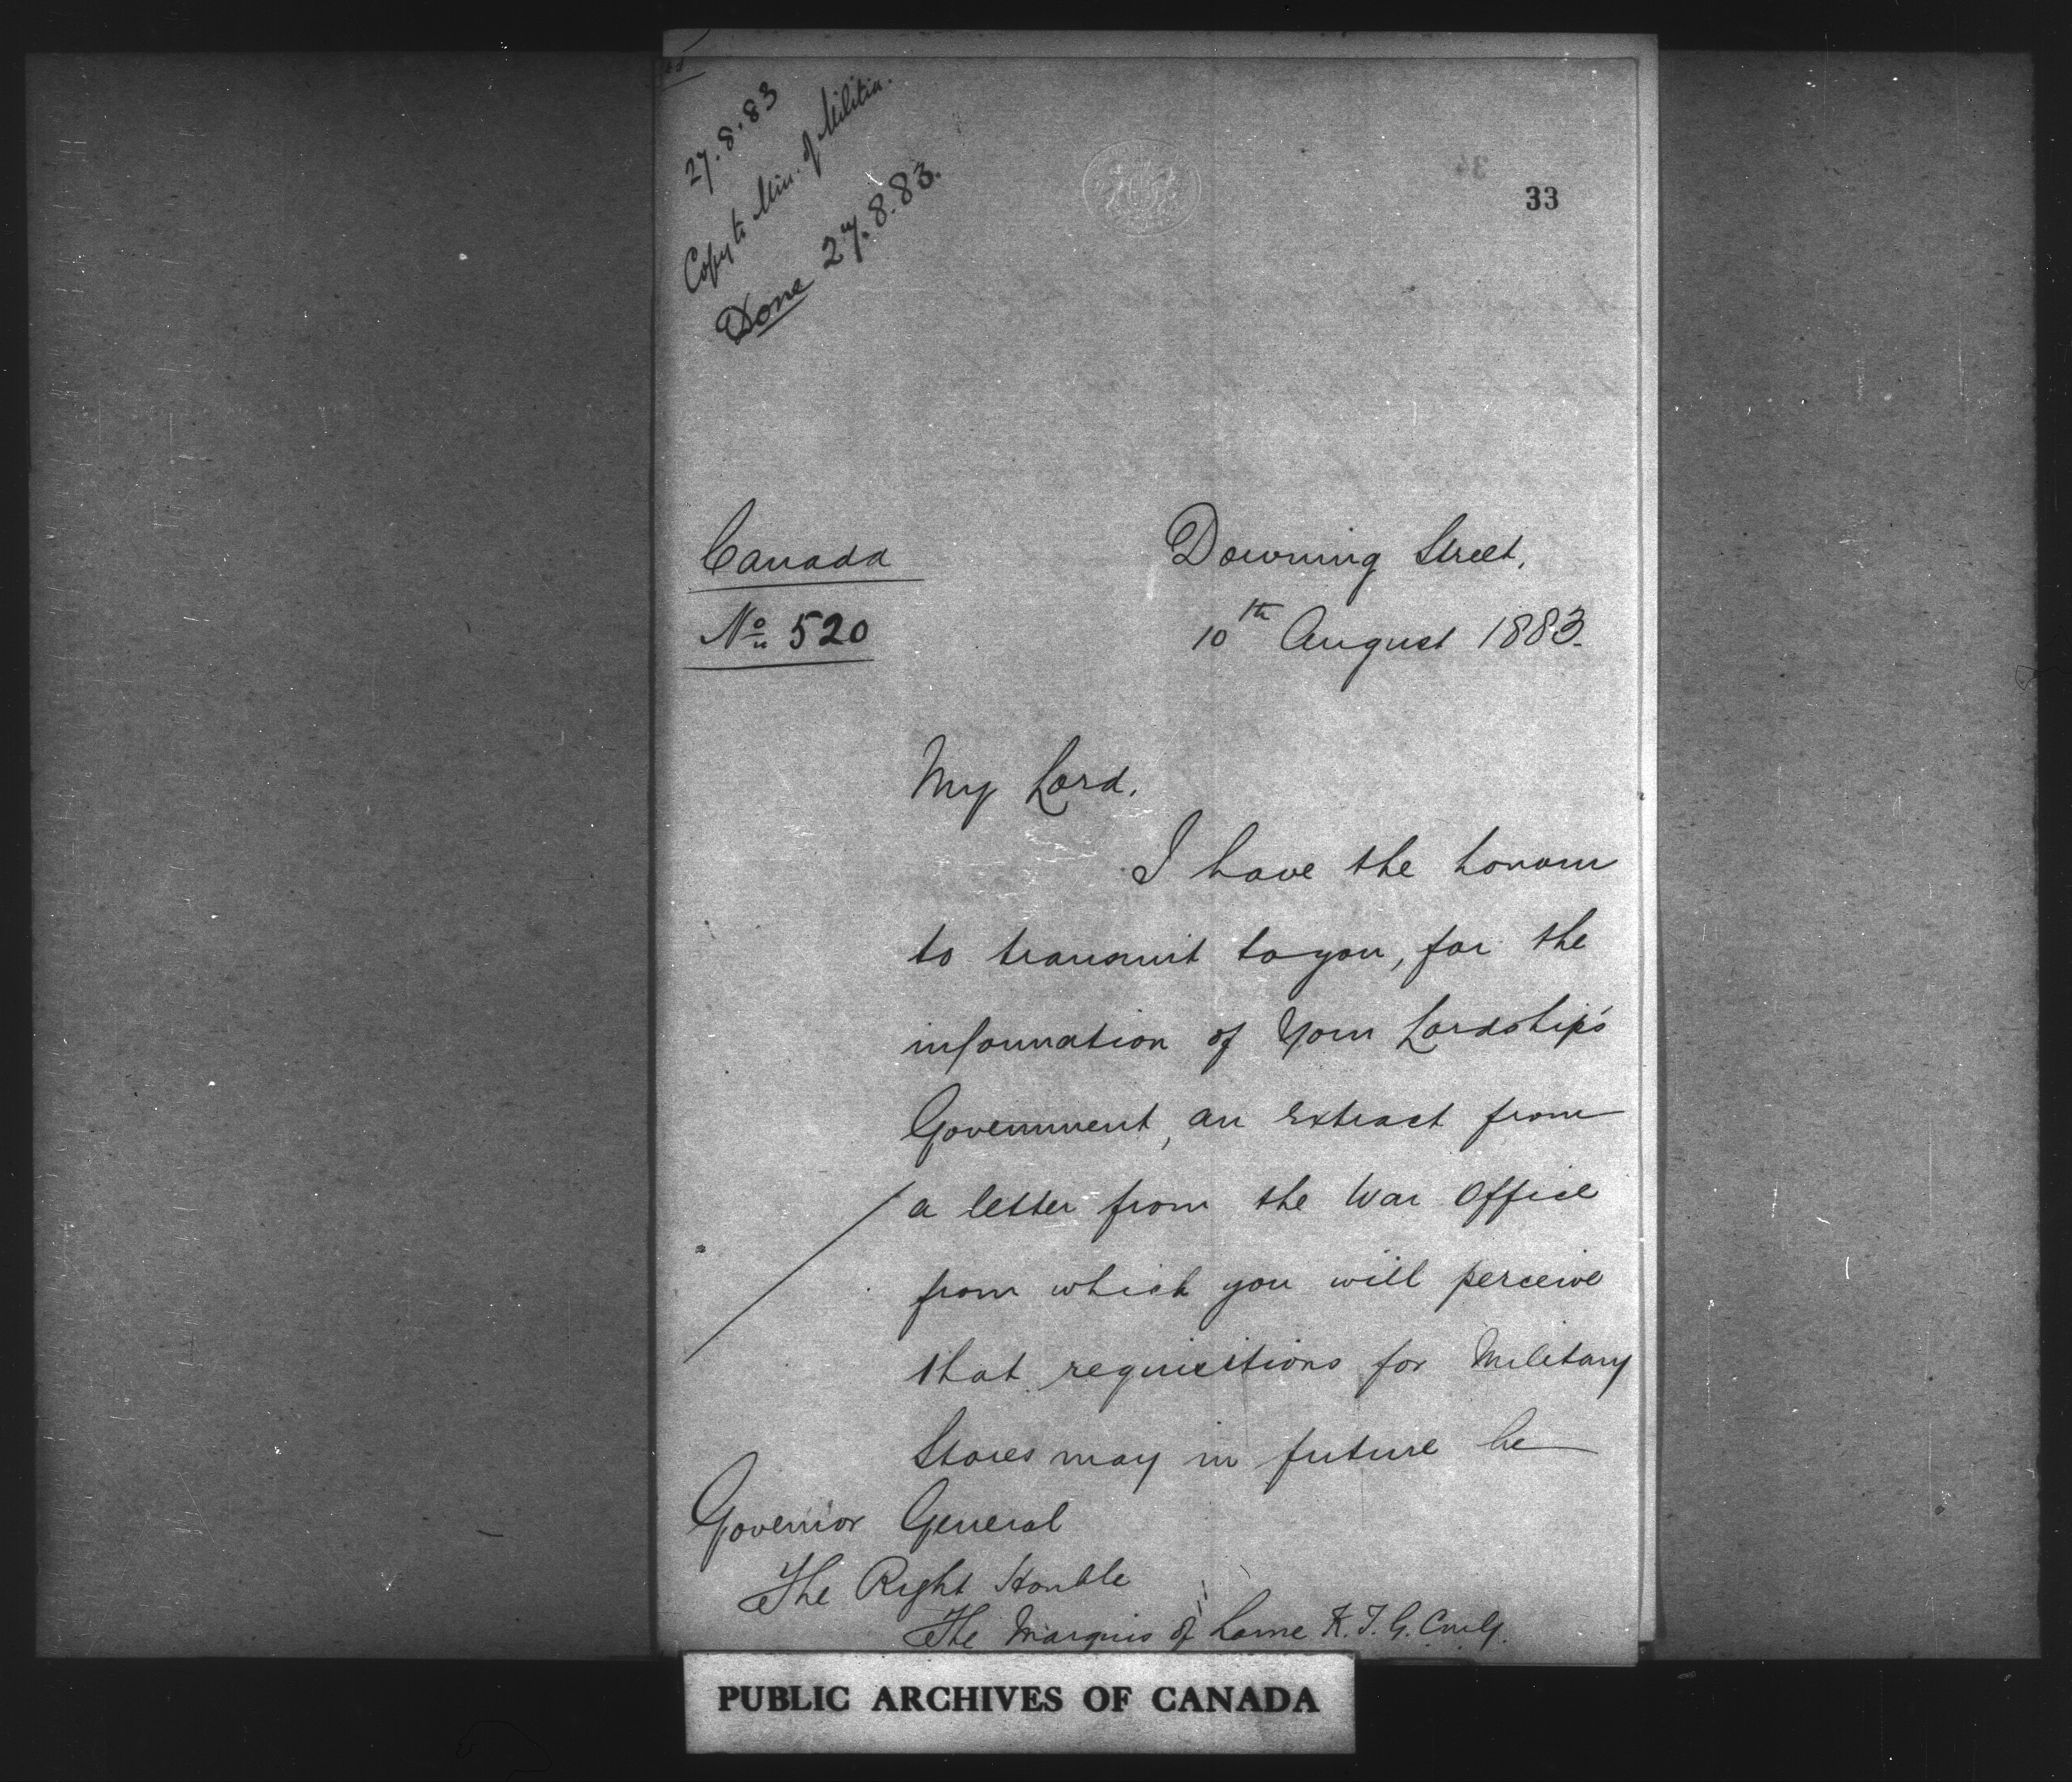 27.8.83
Copy to Min. of Militia.
Done 27.8.83.
33
Canada
Downing Street,
No 520
10th August 1883.
My Lord,
I have the honour
to transmit to you, for the
information of Your Lordship's
Government, an extract from
a letter from the War Office
from which you will perceive
that requisitions for Military
Stores may in future be
Governor General
The Right Honble
The Marquis of Lorne K.T. G.C.M.G.
PUBLIC ARCHIVES OF CANADA